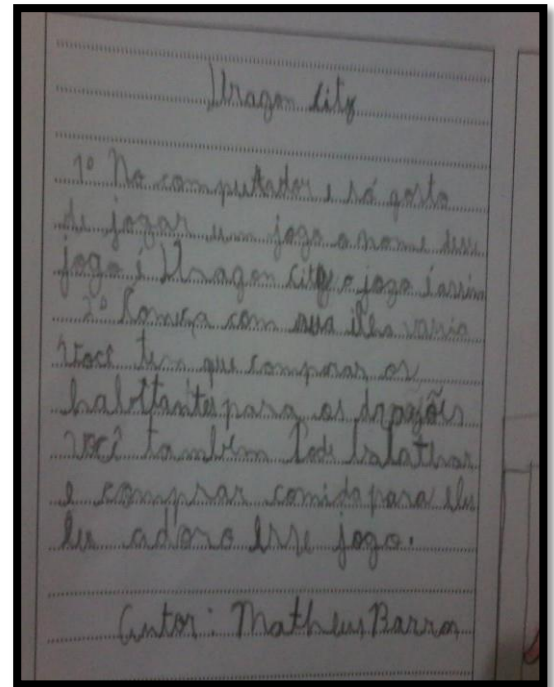 Dragon City
1º No computador e só gosto
de jogar um jogo o nome desse
jogo é Dragon City o jogo é assim
2º Começa com sua ilha vazia
você tem que comprar os
habitantes para os dragões
você também Pode batalhar
e comprar comida para eles
Eu adoro esse jogo.
Autor: Matheus Barros